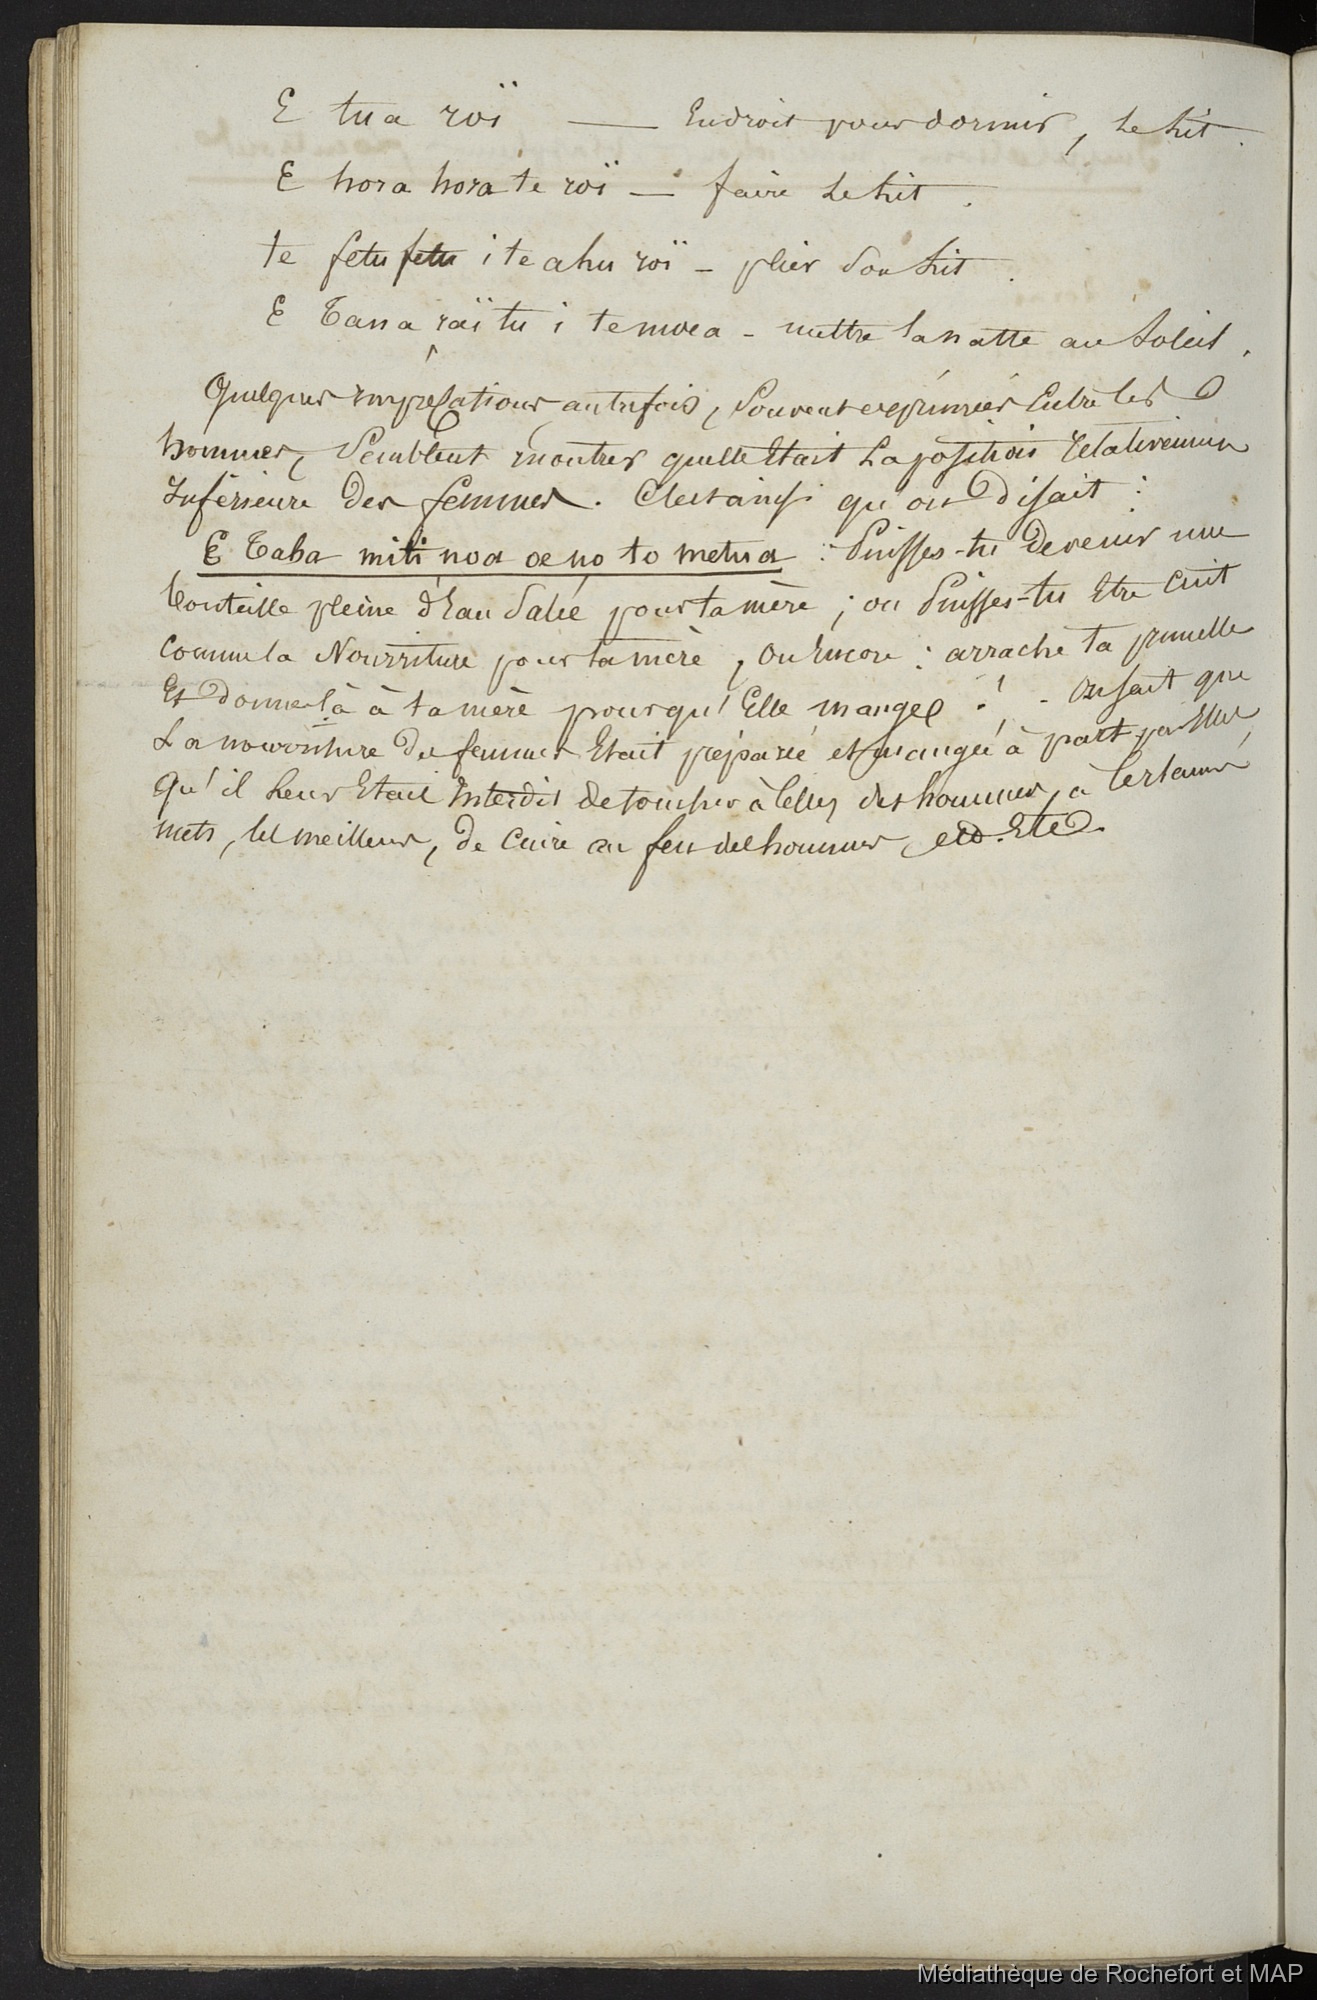 E tua roï — Endroit pour dormir, le Lit.
E hora hora te roï — faire le Lit.
te fetu fetu i te ahu roï — plier son Lit.
E Tana raï tu i te moea — mettre la natte au Soleil.
Quelques imprécations autrefois, Souvent exprimées Entre les
hommes, Semblent montrer quelle Etait La position relativement
Inférieure Des femmes. C'est ainsi qu'on Disait :
E Taha miti noa oe no to metua : Puisses-tu Devenir une
bouteille pleine d'Eau Salée pour ta mère ; ou Puisses-tu Etre Cuit
comme la Nourriture pour ta mère, ou Encore : arrache ta prunelle
Et Donne là à ta mère pour qu'Elle mange ! - on sait que
La nourriture des femmes Etait préparée et mangée à part par Elles,
Qu'il Leur Etait Interdit de toucher à Celles des hommes, à Certains
mets, les meilleurs, de Cuire au feu des hommes, etc. Etc.
Médiathèque de Rochefort et MAP